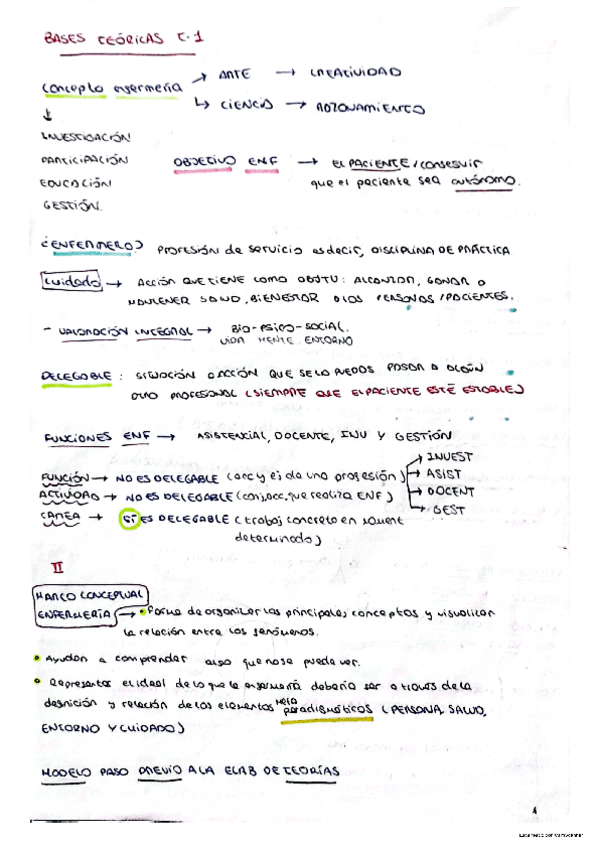 BASES TEÓRICAS T.1
Concepto enfermería → ARTE → CREATIVIDAD
↳ CIENCIA → RAZONAMIENTO
↓
INVESTIGACIÓN
PARTICIPACIÓN
EDUCACIÓN
GESTIÓN.
OBJETIVO ENF → EL PACIENTE/conseguir
que el paciente sea autónomo.
¿ENFERMERO? PROFESIÓN de servicio es decir, DISCIPLINA DE PRÁCTICA
Cuidado → ACCIÓN QUE TIENE COMO OBJTV: ALCANZAR, GANAR O
MANTENER SALUD, BIENESTAR A LAS PERSONAS/PACIENTES.
- VALORACIÓN INTEGRAL → BIO-PSICO-SOCIAL.
VIDA MENTE ENTORNO
DELEGABLE: SITUACIÓN O ACCIÓN QUE SE LO PUEDAS PASAR A ALGÚN
OTRO PROFESIONAL (SIEMPRE QUE EL PACIENTE ESTÉ ESTABLE)
FUNCIONES ENF → ASISTENCIAL, DOCENTE, INV Y GESTIÓN
FUNCIÓN → NO ES DELEGABLE (acc y ej de una profesión) → INVEST
→ ASIST
→ DOCENT
→ GEST
ACTIVIDAD → NO ES DELEGABLE (conj. acc. que realiza ENF)
TAREA → SÍ ES DELEGABLE (trabaj concreto en
determinado)
II
MARCO CONCEPTUAL
ENFERMERÍA → • Forma de organizar los principales conceptos y visualizar
la relación entre los fenómenos.
• Ayudan a comprender algo que no se puede ver.
• Representar el ideal de lo que la enfermería debería ser a través de la
definición y relación de los elementos meta
paradigmáticos (PERSONA, SALUD,
ENTORNO Y CUIDADO)
MODELO PASO PREVIO A LA ELAB DE TEORÍAS